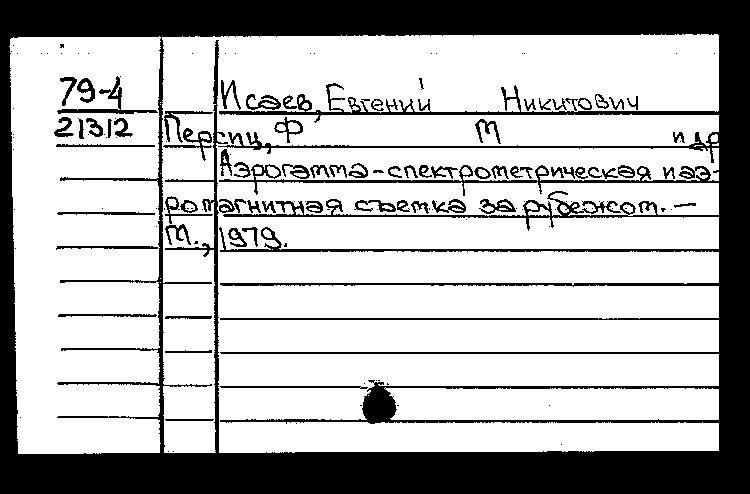 79-4 Исаев, Евгений Никитович
21312 Перспц, Ф М и др
Аэрогамма-спектрометрическая и аэ-
ромагнитная съемка за рубежом. —
М., 1979.